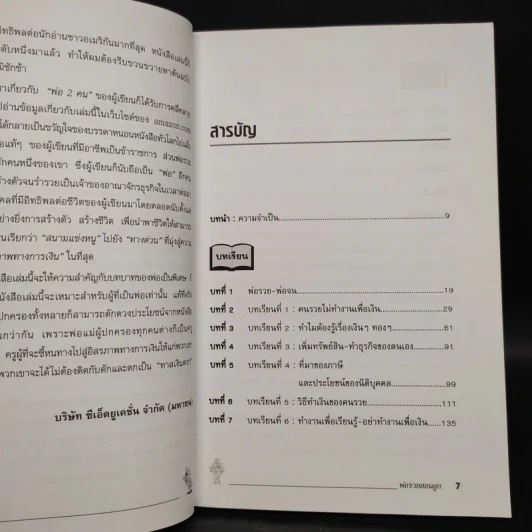 อิทธิพลต่อนักอ่านชาวอเมริกันมากที่สุด หนังสือเล่มนี้ไ
ดับหนึ่งมาแล้ว ทำให้ผมต้องรีบขวนขวายหาต้นฉบับ
มิชักช้า
มาเกี่ยวกับ "พ่อ 2 คน" ของผู้เขียนก็ได้รับการคลี่คลาย
ปอ่านข้อมูลเกี่ยวกับเล่มนี้ในเว็บไซต์ของ amazon.com
ได้กลายเป็นขวัญใจของบรรดาหนอนหนังสือทั่วโลกไปแล้ว
อแท้ๆ ของผู้เขียนที่มีอาชีพเป็นข้าราชการ ส่วนพ่อรวย
ีกคนหนึ่งของเขา ซึ่งผู้เขียนก็นับถือเป็น "พ่อ" อีกคน
ร่างตัวจนร่ำรวยเป็นเจ้าของอาณาจักรธุรกิจในเวลาต่อมา
คลที่มีอิทธิพลต่อชีวิตของผู้เขียนมาโดยตลอดนับตั้งแต่
อย่างยิ่งการสร้างตัว สร้างชีวิต เพื่อนำพาชีวิตให้สามาร
นเรียกว่า "สนามแข่งหนู" ไปยัง "ทางด่วน" ที่มุ่งสู่ความ
ภาพทางการเงิน" ในที่สุด
สือเล่มนี้จะให้ความสำคัญกับบทบาทของพ่อเป็นพิเศษ ก็
นังสือเล่มนี้จะเหมาะสำหรับผู้ที่เป็นพ่อเท่านั้น แท้ที่จริง
ปกครองทั้งหลายก็สามารถตักตวงประโยชน์จากหนังสือ
นกว่ากัน เพราะพ่อแม่ผู้ปกครองทุกคนต่างก็เป็นครู
ครูผู้ที่จะชี้หนทางไปสู่อิสรภาพทางการเงินให้แก่พวกเขา
พวกเขาจะได้ไม่ต้องติดกับดักและตกเป็น "ทาสเงินตรา"
บริษัท ซีเอ็ดยูเคชั่น จำกัด (มหาชน)
สารบัญ
บทนำ : ความจำเป็น 9
บทเรียน
บทที่ 1 พ่อรวย-พ่อจน 19
บทที่ 2 บทเรียนที่ 1 : คนรวยไม่ทำงานเพื่อเงิน 29
บทที่ 3 บทเรียนที่ 2 : ทำไมต้องรู้เรื่องเงินๆ ทองๆ 61
บทที่ 4 บทเรียนที่ 3 : เพิ่มทรัพย์สิน-ทำธุรกิจของตนเอง 91
บทที่ 5 บทเรียนที่ 4 : ที่มาของภาษี
และประโยชน์ของนิติบุคคล 99
บทที่ 6 บทเรียนที่ 5 : วิธีทำเงินของคนรวย 111
บทที่ 7 บทเรียนที่ 6 : ทำงานเพื่อเรียนรู้-อย่าทำงานเพื่อเงิน 135
พ่อรวยสอนลูก 7